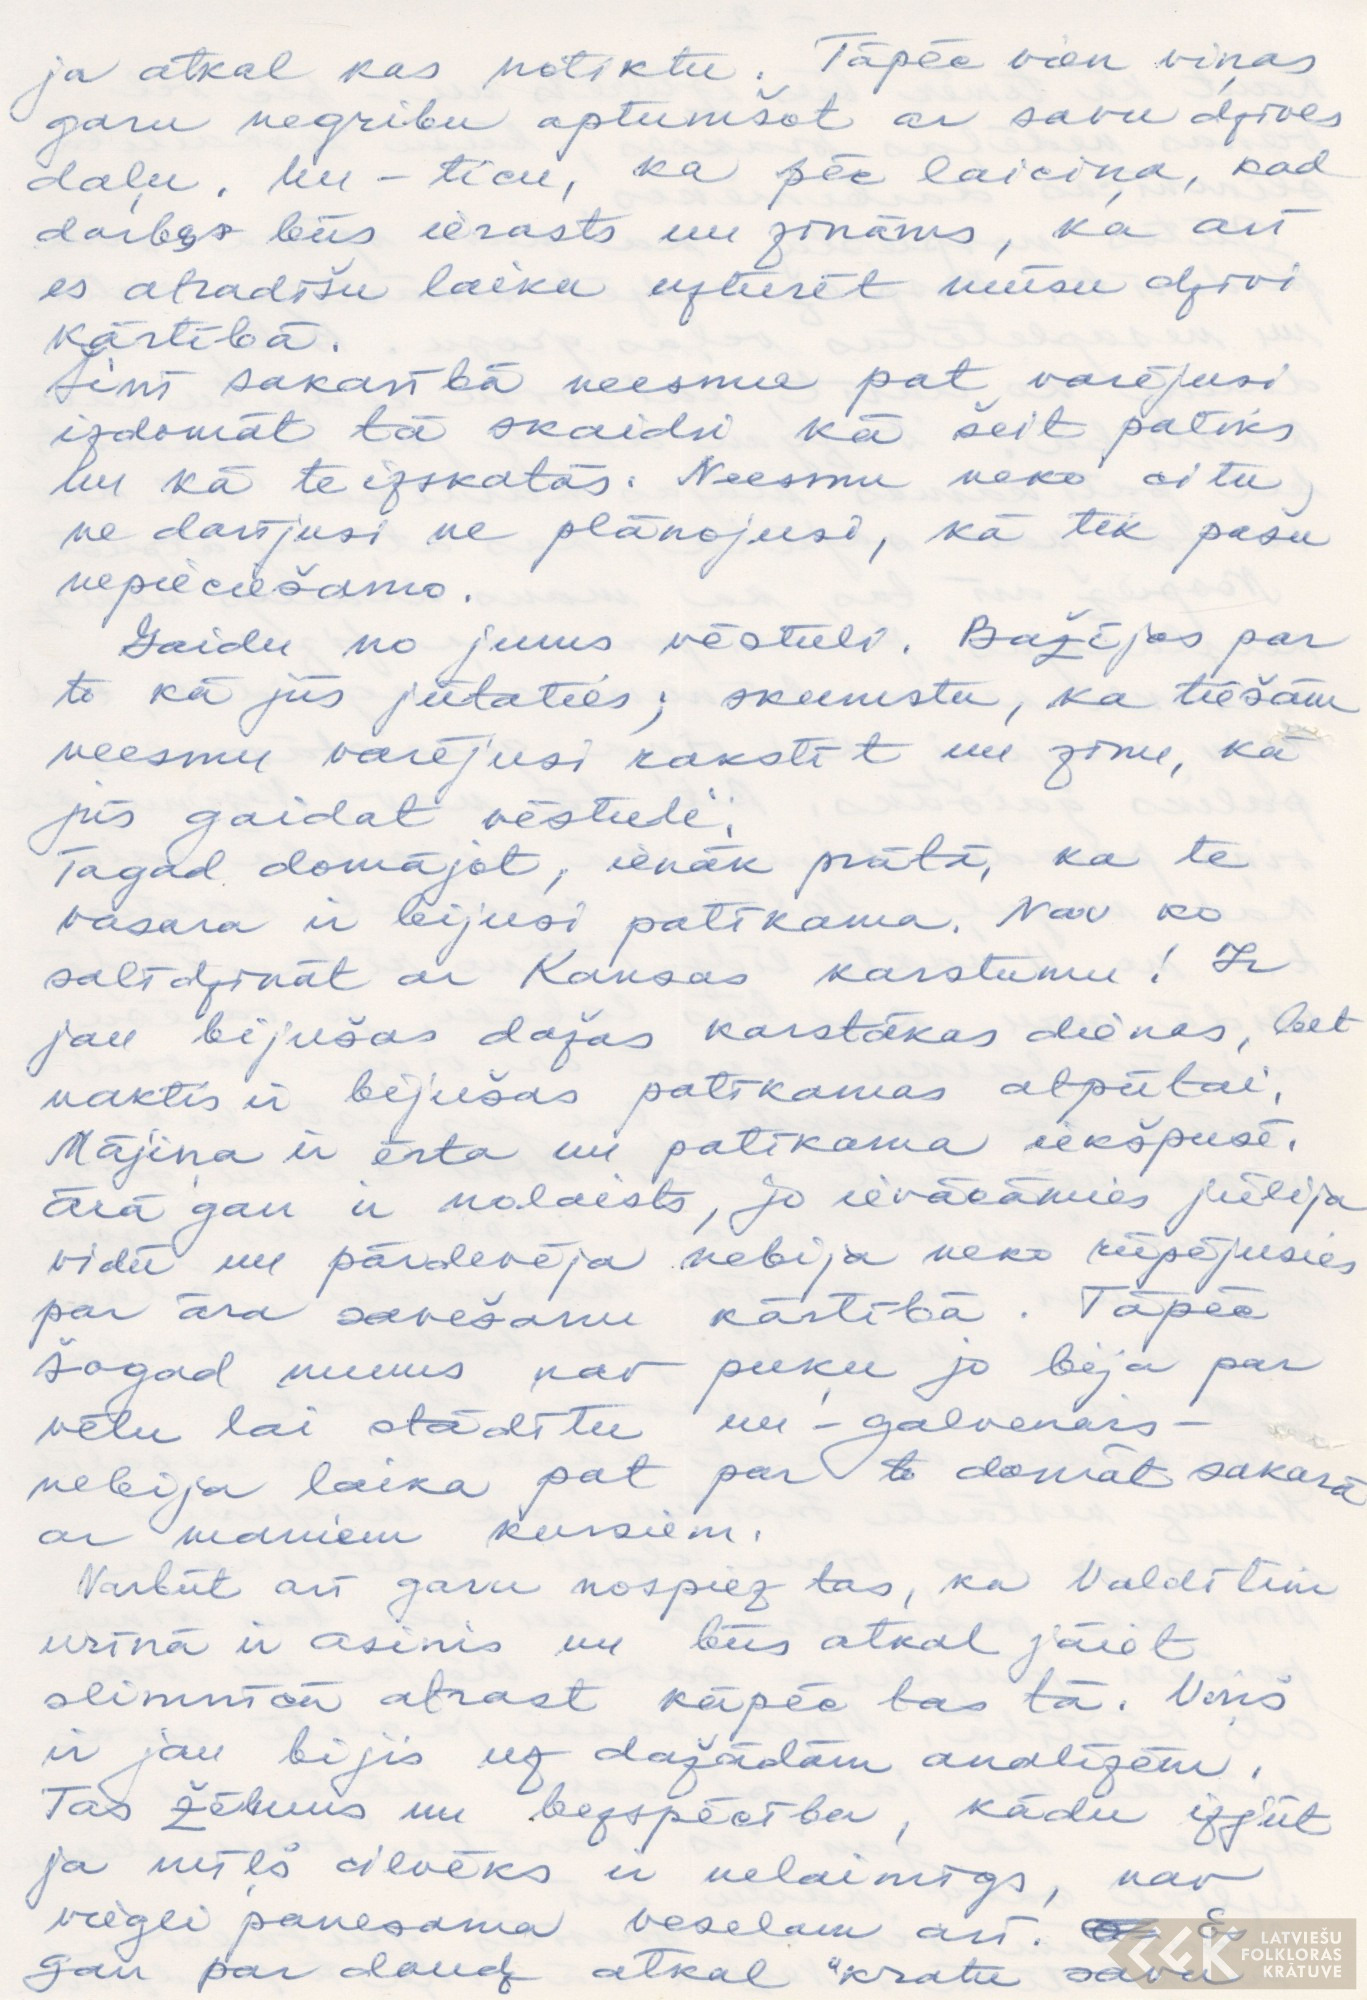 ja atkal kas notiktu. Tāpēc vien viņas
garu negribu aptumšot ar savu dzīves
daļu. Un – ticu, ka pēc laiciņa, kad
darbs būs ierasts un zināms, ka arī
es atradīšu laiku uzturēt mūsu dzīvi
kārtībā.
Šinī sakarībā neesmu pat varējusi
izdomāt tā skaidri kā šeit patiks
un kā te izskatās. Neesmu neko citu
ne darījusi ne plānojusi, kā tik pašu
nepieciešamo.
Gaidu no jums vēstuli. Bažījos par
to kā jūs jūtaties; skumstu, ka tiešām
neesmu varējusi rakstīt un zinu, kā
jūs gaidat vēstuli.
Tagad domājot, ienāk prātā, ka te
vasara ir bijusi patīkama. Nav ko
salīdzināt ar Kansas karstumu! Ir
jau bijušas dažas karstākas dienas, bet
naktis ir bijušas patīkamas atpūtai.
Mājiņa ir ērta un patīkama iekšpusē.
Ārā gan ir nolaists, jo ievācāmies jūlija
vidū un pārdevēja nebija neko rūpējusies
par āra savešanu kārtībā. Tāpēc
šogad mums nav puķu jo bija par
vēlu lai stādītu un – galvenais –
nebija laika pat par to domāt sakarā
ar maniem kursiem.
Varbūt arī garu nospiež tas, ka Valdītim
urīnā ir asinis un būs atkal jāiet
slimnīcā atrast kāpēc tas tā. Viņš
ir jau bijis uz dažādām analīzēm.
Tas žēlums un bezspēcība, kādu izjūt
ja mīļš cilvēks ir nelaimīgs, nav
viegli panesama veselam arī. Es
gan par daudz atkal "kratu savu
LATVIEŠU
FOLKLORAS
KRĀTUVE